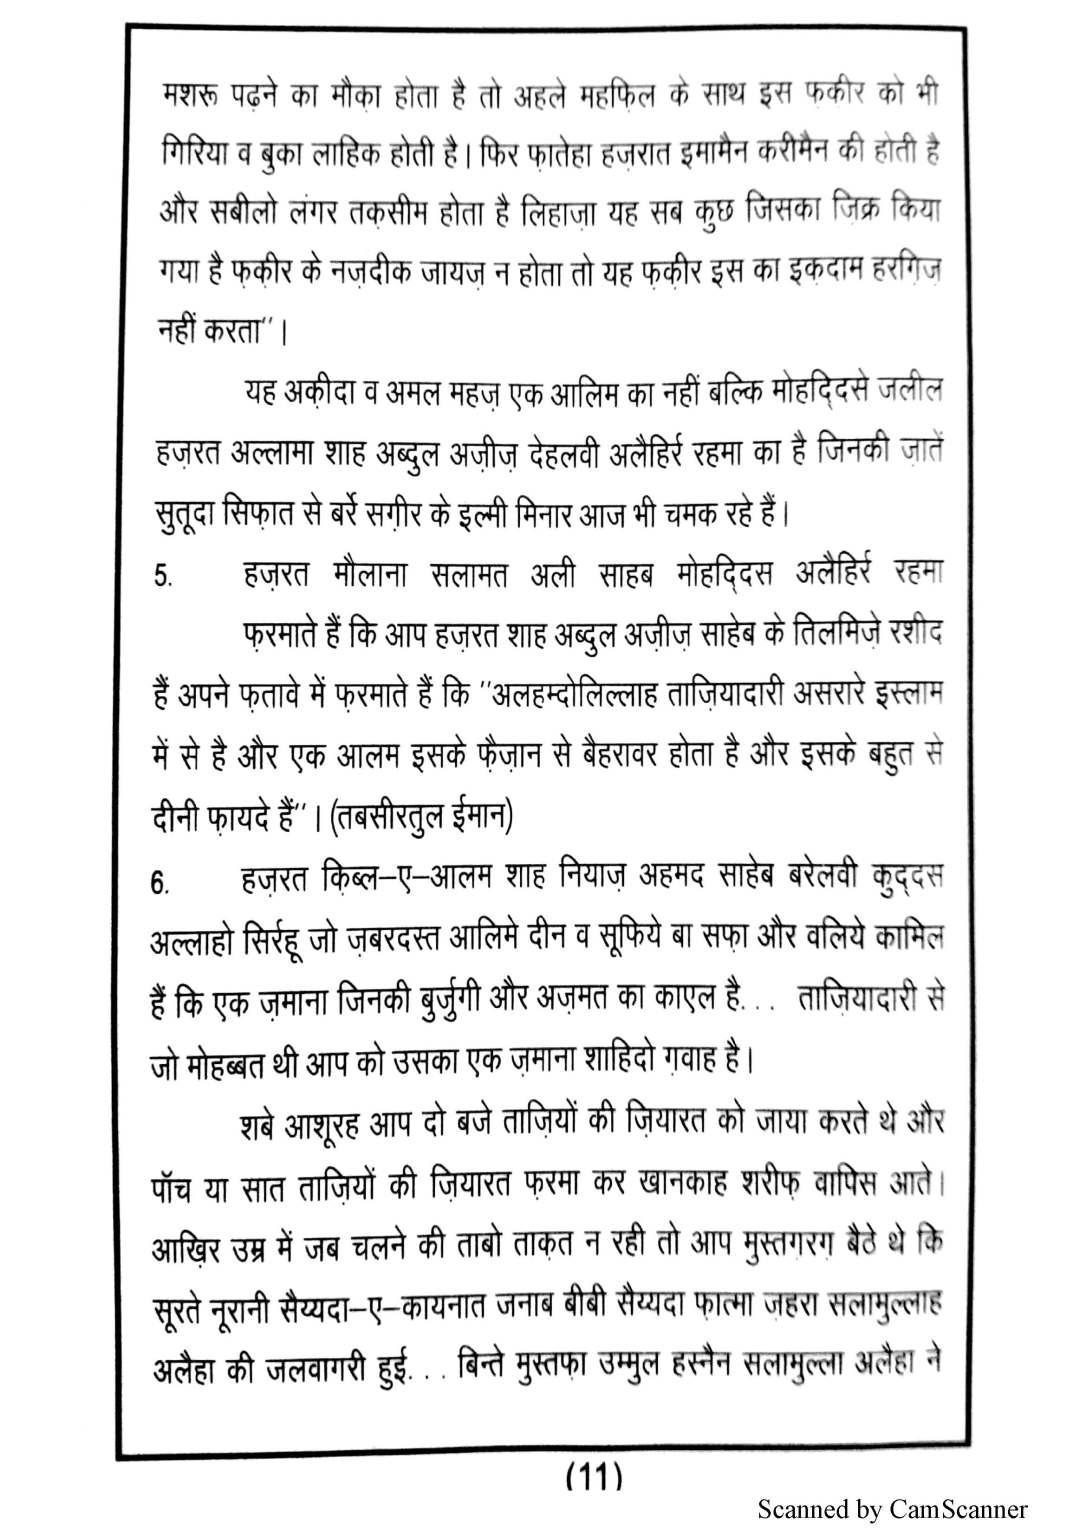 मशरू पढ़ने का मौक़ा होता है तो अहले महफ़िल के साथ इस फ़कीर को भी
गिरिया व बुका लाहिक होती है। फिर फ़ातेहा हज़रात इमामैन करीमैन की होती है
और सबीलो लंगर तक़सीम होता है लिहाज़ा यह सब कुछ जिसका ज़िक्र किया
गया है फ़क़ीर के नज़दीक जायज़ न होता तो यह फ़क़ीर इस का इक़दाम हरगिज़
नहीं करता''।
यह अक़ीदा व अमल महज़ एक आलिम का नहीं बल्कि मोहद्दिसे जलील
हज़रत अल्लामा शाह अब्दुल अज़ीज़ देहलवी अलैहिर्र रहमा का है जिनकी ज़ातें
सुतूदा सिफ़ात से बर्रे सग़ीर के इल्मी मिनार आज भी चमक रहे हैं।
5. हज़रत मौलाना सलामत अली साहब मोहद्दिस अलैहिर्र रहमा
फ़रमाते हैं कि आप हज़रत शाह अब्दुल अज़ीज़ साहेब के तिलमिज़े रशीद
हैं अपने फ़तावे में फ़रमाते हैं कि ''अलहम्दोलिल्लाह ताज़ियादारी असरारे इस्लाम
में से है और एक आलम इसके फ़ैज़ान से बैहरावर होता है और इसके बहुत से
दीनी फ़ायदे हैं''। (तबसीरतुल ईमान)
6. हज़रत क़िब्ल–ए–आलम शाह नियाज़ अहमद साहेब बरेलवी कुद्दस
अल्लाहो सिर्रहू जो ज़बरदस्त आलिमे दीन व सूफिये बा सफ़ा और वलिये कामिल
हैं कि एक ज़माना जिनकी बुर्जुगी और अज़मत का काएल है... ताज़ियादारी से
जो मोहब्बत थी आप को उसका एक ज़माना शाहिदो ग़वाह है।
शबे आशूरह आप दो बजे ताज़ियों की ज़ियारत को जाया करते थे और
पॉच या सात ताज़ियों की ज़ियारत फ़रमा कर खानकाह शरीफ़ वापिस आते।
आख़िर उम्र में जब चलने की ताबो ताक़त न रही तो आप मुस्तग़रग़ बैठे थे कि
सूरते नूरानी सैय्यदा–ए–कायनात जनाब बीबी सैय्यदा फ़ात्मा ज़हरा सलामुल्लाह
अलैहा की जलवागरी हुई... बिन्ते मुस्तफ़ा उम्मुल हस्नैन सलामुल्ला अलैहा ने
(11)
Scanned by CamScanner